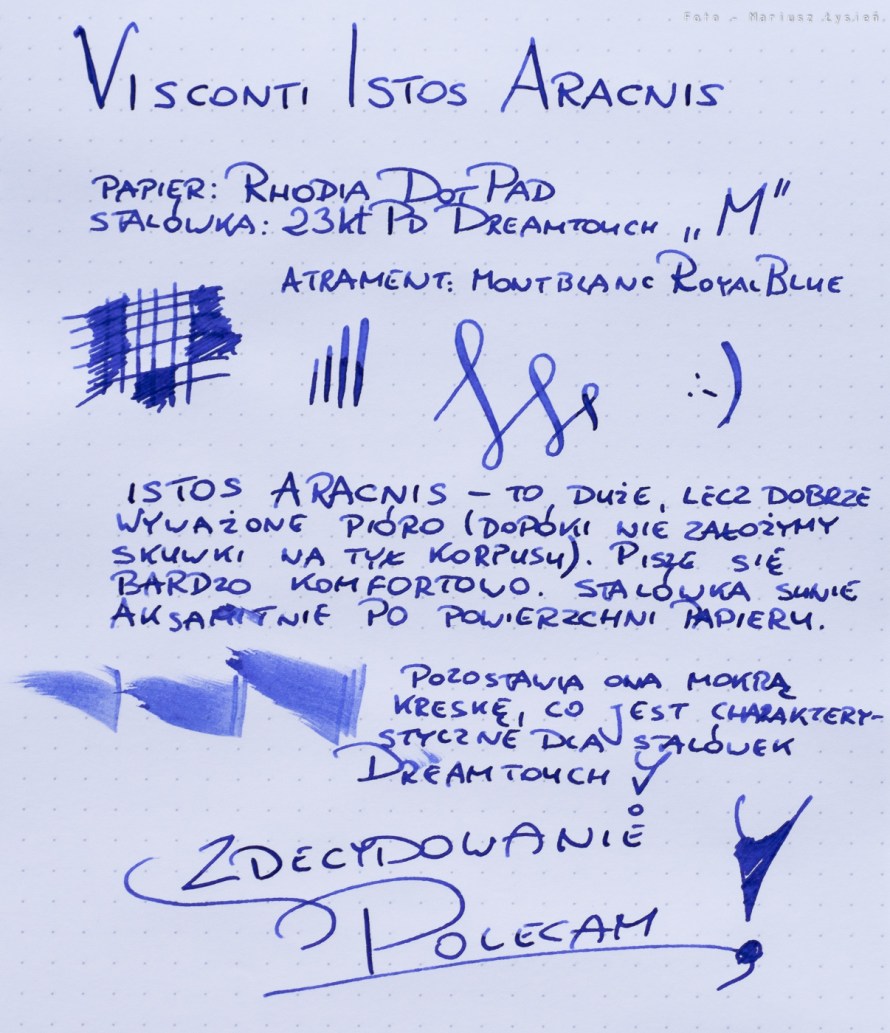 Foto - Mariusz Łysień.
VISCONTI ISTOS ARACNIS
PAPIER: RHODIA DOT PAD
STALÓWKA: 23kt PD DREAMTOUCH „M”
ATRAMENT: MONTBLANC ROYAL BLUE
:-)
ISTOS ARACNIS – TO DUŻE, LECZ DOBRZE
WYWAŻONE PIÓRO (DOPÓKI NIE ZAŁOŻYMY
SKUWKI NA TYŁ KORPUSU). PISZE SIĘ
BARDZO KOMFORTOWO. STALÓWKA SUNIE
AKSAMITNIE PO POWIERZCHNI PAPIERU.
POZOSTAWIA ONA MOKRĄ
KRESKĘ, CO JEST CHARAKTERY-
STYCZNE DLA STALÓWEK
DREAMTOUCH
ZDECYDOWANIE
POLECAM!